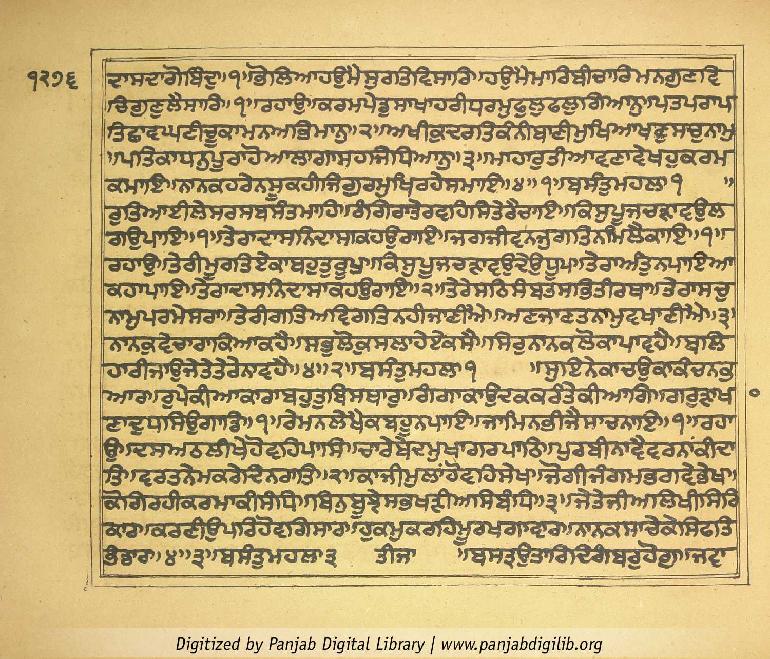 ੧੨੭੬
ਦਾਸਦਾਗੋਬਿੰਦੁ॥੧॥ਭੋਲਿਆਹਉਮੈਸੁਰਤਿਵਿਸਾਰਿ॥ਹਉਮੈਮਾਰਿਬੀਚਾਰਿਮਨਗੁਣਵਿ
ਚਿਗੁਣੁਲੈਸਾਰਿ॥੧॥ਰਹਾਉ॥ਕਰਮਪੇਡੁਸਾਖਾਹਰੀਧਰਮੁਫੁਲੁਫਲੁਗਿਆਨੁ॥ਪਤਪਰਾਪ
ਤਿਛਾਵਘਣੀਚੂਕਾਮਨਅਭਿਮਾਨੁ॥੨॥ਅਖੀਕੁਦਰਤਿਕੰਨੀਬਾਣੀਮੁਖਿਆਖਣੁਸਚੁਨਾਮੁ
॥ਪਤਿਕਾਧਨੁਪੂਰਾਹੋਆਲਾਗਾਸਹਜਿਧਿਆਨੁ॥੩॥ਮਾਹਾਰੁਤੀਆਵਣਾਵੇਖਹੁਕਰਮ
ਕਮਾਇ॥ਨਾਨਕਹਰੇਨਸੂਕਹੀਜਿਗੁਰਮੁਖਿਰਹੇਸਮਾਇ॥੪॥੧॥ਬਸੰਤੁਮਹਲਾ੧ ॥
ਰੁਤਿਆਈਲੇਸਰਸਬਸੰਤਮਾਹਿ॥ਰੰਗਿਰਾਤੇਰਵਹਿਸਿਤੇਰੈਚਾਇ॥ਕਿਸੁਪੂਜਚੜਾਵਉਲ
ਗਉਪਾਇ॥੧॥ਤੇਰਾਦਾਸਨਿਦਾਸਾਕਹਉਰਾਇ॥ਜਗਜੀਵਨਜੁਗਤਿਨਮਿਲੈਕਾਇ॥੧॥
ਰਹਾਉ॥ਤੇਰੀਮੂਰਤਿਏਕਾਬਹੁਤੁਰੂਪ॥ਕਿਸੁਪੂਜਚੜਾਵਉਦੇਉਧੂਪ॥ਤੇਰਾਅੰਤੁਨਪਾਇਆ
ਕਹਾਪਾਇ॥ਤੇਰਾਦਾਸਨਿਦਾਸਾਕਹਉਰਾਇ॥੨॥ਤੇਰੇਸਠਿਸੰਬਤਸਭਿਤੀਰਥਾ॥ਤੇਰਾਸਚੁ
ਨਾਮੁਪਰਮੇਸਰਾ॥ਤੇਰੀਗਤਿਅਵਿਗਤਿਨਹੀਜਾਣੀਐ॥ਅਣਜਾਣਤਨਾਮੁਵਖਾਣੀਐ॥੩॥
ਨਾਨਕੁਵੇਚਾਰਾਕਿਆਕਹੈ॥ਸਭੁਲੋਕੁਸਲਾਹੇਏਕਸੈ॥ਸਿਰੁਨਾਨਕਲੋਕਾਪਾਵਹੈ॥ਬਲਿ
ਹਾਰੀਜਾਉਜੇਤੇਤੇਰੇਨਾਵਹੈ॥੪॥੨॥ਬਸੰਤੁਮਹਲਾ੧ ॥ਸੁਇਨੇਕਾਚਉਕਾਕੰਚਨਕੁ
ਆਰ॥ਰੁਪੇਕੀਆਕਾਰਾਬਹੁਤੁਬਿਸਥਾਰੁ॥ਗੰਗਾਕਾਉਦਕਕਰੰਤੇਕੀਆਗਿ॥ਗਰੁੜਾਖਾ
ਣਾਦੁਧਸਿਉਗਾਡਿ॥੧॥ਰੇਮਨਲੇਖੈਕਬਹੂਨਪਾਇ॥ਜਾਮਿਨਭੀਜੈਸਾਚਨਾਇ॥੧॥ਰਹਾ
ਉ॥ਦਸਅਠਲੀਖੇਹੋਵਹਿਪਾਸਿ॥ਚਾਰੇਬੇਦਮੁਖਾਗਰਪਾਠਿ॥ਪੁਰਬੀਨਾਵੈਵਰਨਾਂਕੀਦਾ
ਤਿ॥ਵਰਤਨੇਮਕਰੇਦਿਨਰਾਤਿ॥੨॥ਕਾਜੀਮੁਲਾਂਹੋਵਹਿਸੇਖ॥ਜੋਗੀਜੰਗਮਭਗਵੇਭੇਖ॥
ਕੋਗਿਰਹੀਕਰਮਾਕੀਸੰਧਿ॥ਬਿਨਬੂਝੇਸਭਖੜੀਅਸਿਬੰਧਿ॥੩॥ਜੇਤੇਜੀਅਲਿਖੀਸਿਰਿ
ਕਾਰ॥ਕਰਣੀਉਪਰਿਹੋਵਗਿਸਾਰ॥ਹੁਕਮੁਕਰਹਿਮੂਰਖਗਾਵਾਰ॥ਨਾਨਕਸਾਚੇਕੇਸਿਫਤਿ
ਭੰਡਾਰ॥੪॥੩॥ਬਸੰਤੁਮਹਲਾ੩ ਤੀਜਾ ॥ਬਸਤ੍ਰਉਤਾਰਿਦਿਗੰਬਰੁਹੋਗੁ॥ਜਟਾ
Digitized by Panjab Digital Library | www.panjabdigilib.org